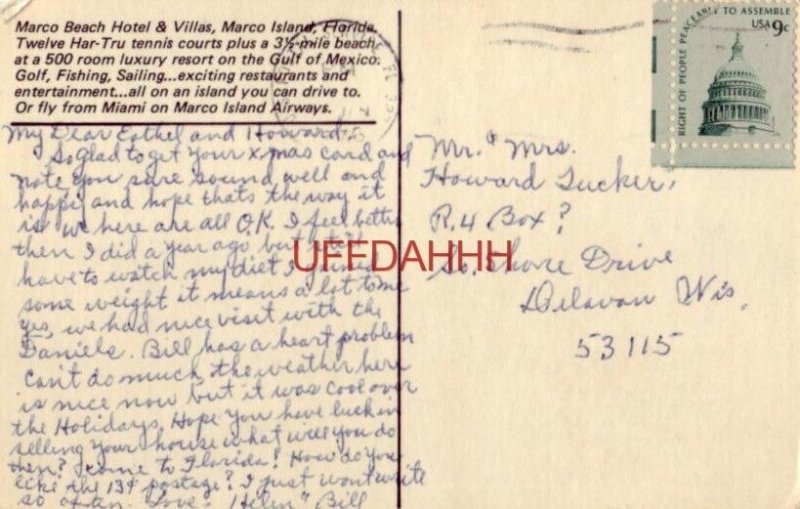 Marco Beach Hotel & Villas, Marco Island, Florida.
Twelve Har-Tru tennis courts plus a 3½-mile beach
at a 500 room luxury resort on the Gulf of Mexico.
Golf, Fishing, Sailing...exciting restaurants and
entertainment...all on an island you can drive to.
Or fly from Miami on Marco Island Airways.
My Dear Esthel and Howard:
So Glad to get your X-mas card and
note you sure sound well and
happy and hope thats the way it
is we here are all O.K. I feel better
then I did a year ago but still
have to watch my diet I gained
some weight it means a lot to me
yes, we had nice visit with the
Daniels. Bill has a heart problem
Can't do much, the weather here
is nice now but it was cool over
the Holidays. Hope you have luck in
selling your house what will you do
then? come to Florida! How do you
like the 13¢ postage? I just wont write
so often. Love - Helen " Bill
RIGHT OF PEOPLE PEACEABLY TO ASSEMBLE
USA 9c
Mr. " Mrs.
Howard Tucker,
R.4 Box?
So. Shore Drive
Delavan Wis,
53115
UFFDAHHH